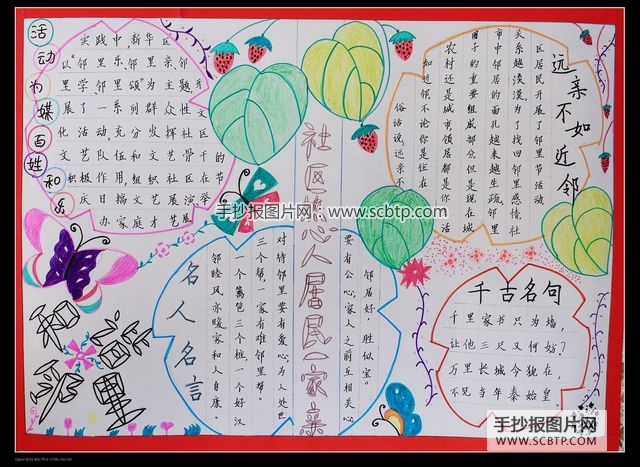 活动为媒百姓和乐
实践中,新华区
以"邻里乐、邻里亲、邻
里学、邻里颂"为主题开
展了一系列群众性文
化活动,充分发挥社区
文艺队伍和文艺骨干的
积极作用,组织社区在节
庆日搞文艺展演、举
办家庭才艺展
社区热心人居民一家亲
远亲不如近邻
俗话说,远亲不
如近邻,不论你是住在
农村还是城市,邻居都是你活
子的重要组成部分但是现在城
市中邻居的面孔越来越生疏邻里
关系越淡漠,为了找回邻里感情,社
区居民开展了邻里节活动
手抄报图片网 www.scbtp.com
和谐邻里
名人名言
邻睦风亦暖,家和人自康。
一个篱笆三个桩,一个好汉
三个帮,一家有难邻里帮。
对待邻里要有爱心,为人处世
要有公心,家人之前互相关心
邻居好,胜似宝。
千古名句
千里家书只为墙,
让他三尺又何妨?
万里长城今犹在
不见当年秦始皇
手抄报图片网
WWW.SCBTP.COM